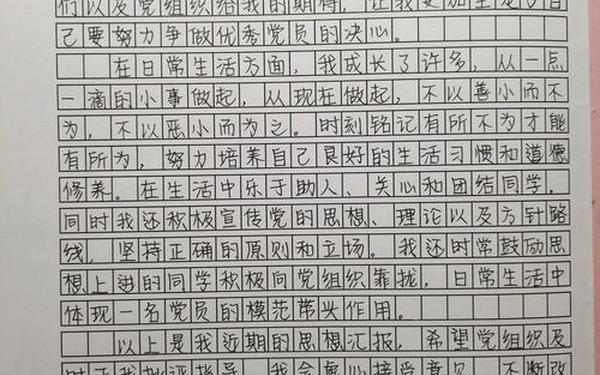 们以及党组织给我的期待，让我更加坚定了自
己要努力争做优秀党员的决心。
在日常生活方面，我成长了许多，从一点
一滴的小事做起，从现在做起，不以善小而不
为，不以恶小而为之。时刻铭记有所不为才能
有所为，努力培养自己良好的生活习惯和道德
修养。在生活中乐于助人、关心和团结同学，
同时我还积极宣传党的思想、理论以及方针路
线，坚持正确的原则和立场。我还时常鼓励思
想上进的同学积极向党组织靠拢，日常生活中
体现一名党员的模范带头作用。
以上是我近期的思想汇报，希望党组织及
时予我批评指导，我会虚心接受意见，不断改